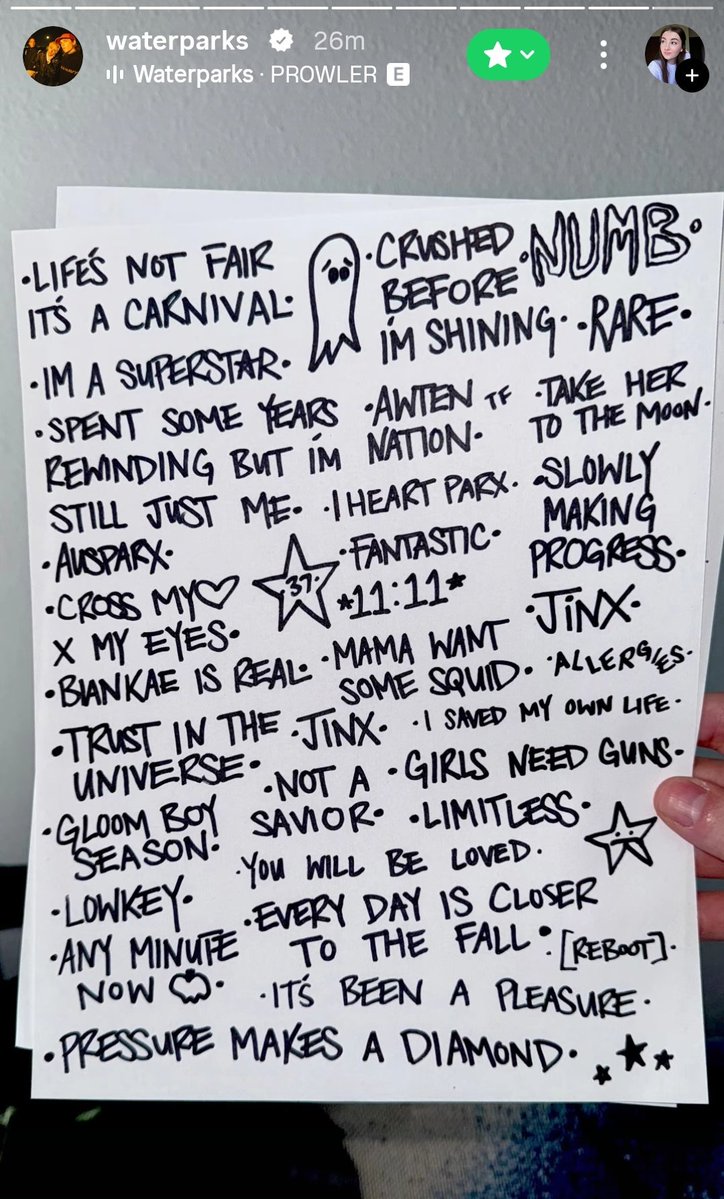 waterparks 26m
Waterparks · PROWLER E
·LIFE'S NOT FAIR
IT'S A CARNIVAL·
·CRUSHED
BEFORE
I'M SHINING·
·NUMB·
·RARE·
·IM A SUPERSTAR·
·SPENT SOME YEARS
REWINDING BUT I'M
STILL JUST ME·
·AWTEN TF
NATION·
·TAKE HER
TO THE MOON·
·I HEART PARX·
·SLOWLY
MAKING
PROGRESS·
·AUSPARX·
·37·
·FANTASTIC·
*11:11*
·CROSS MY♡
X MY EYES·
·JINX·
·BLANKAE IS REAL·
·MAMA WANT
SOME SQUID·
·ALLERGIES·
·TRUST IN THE
UNIVERSE·
·JINX·
·I SAVED MY OWN LIFE·
·NOT A
SAVIOR·
·GIRLS NEED GUNS·
·GLOOM BOY
SEASON·
·LIMITLESS·
·YOU WILL BE LOVED·
·LOWKEY·
·EVERY DAY IS CLOSER
TO THE FALL·
·ANY MINUTE
NOW ·
·[REBOOT]·
·IT'S BEEN A PLEASURE·
·PRESSURE MAKES A DIAMOND·